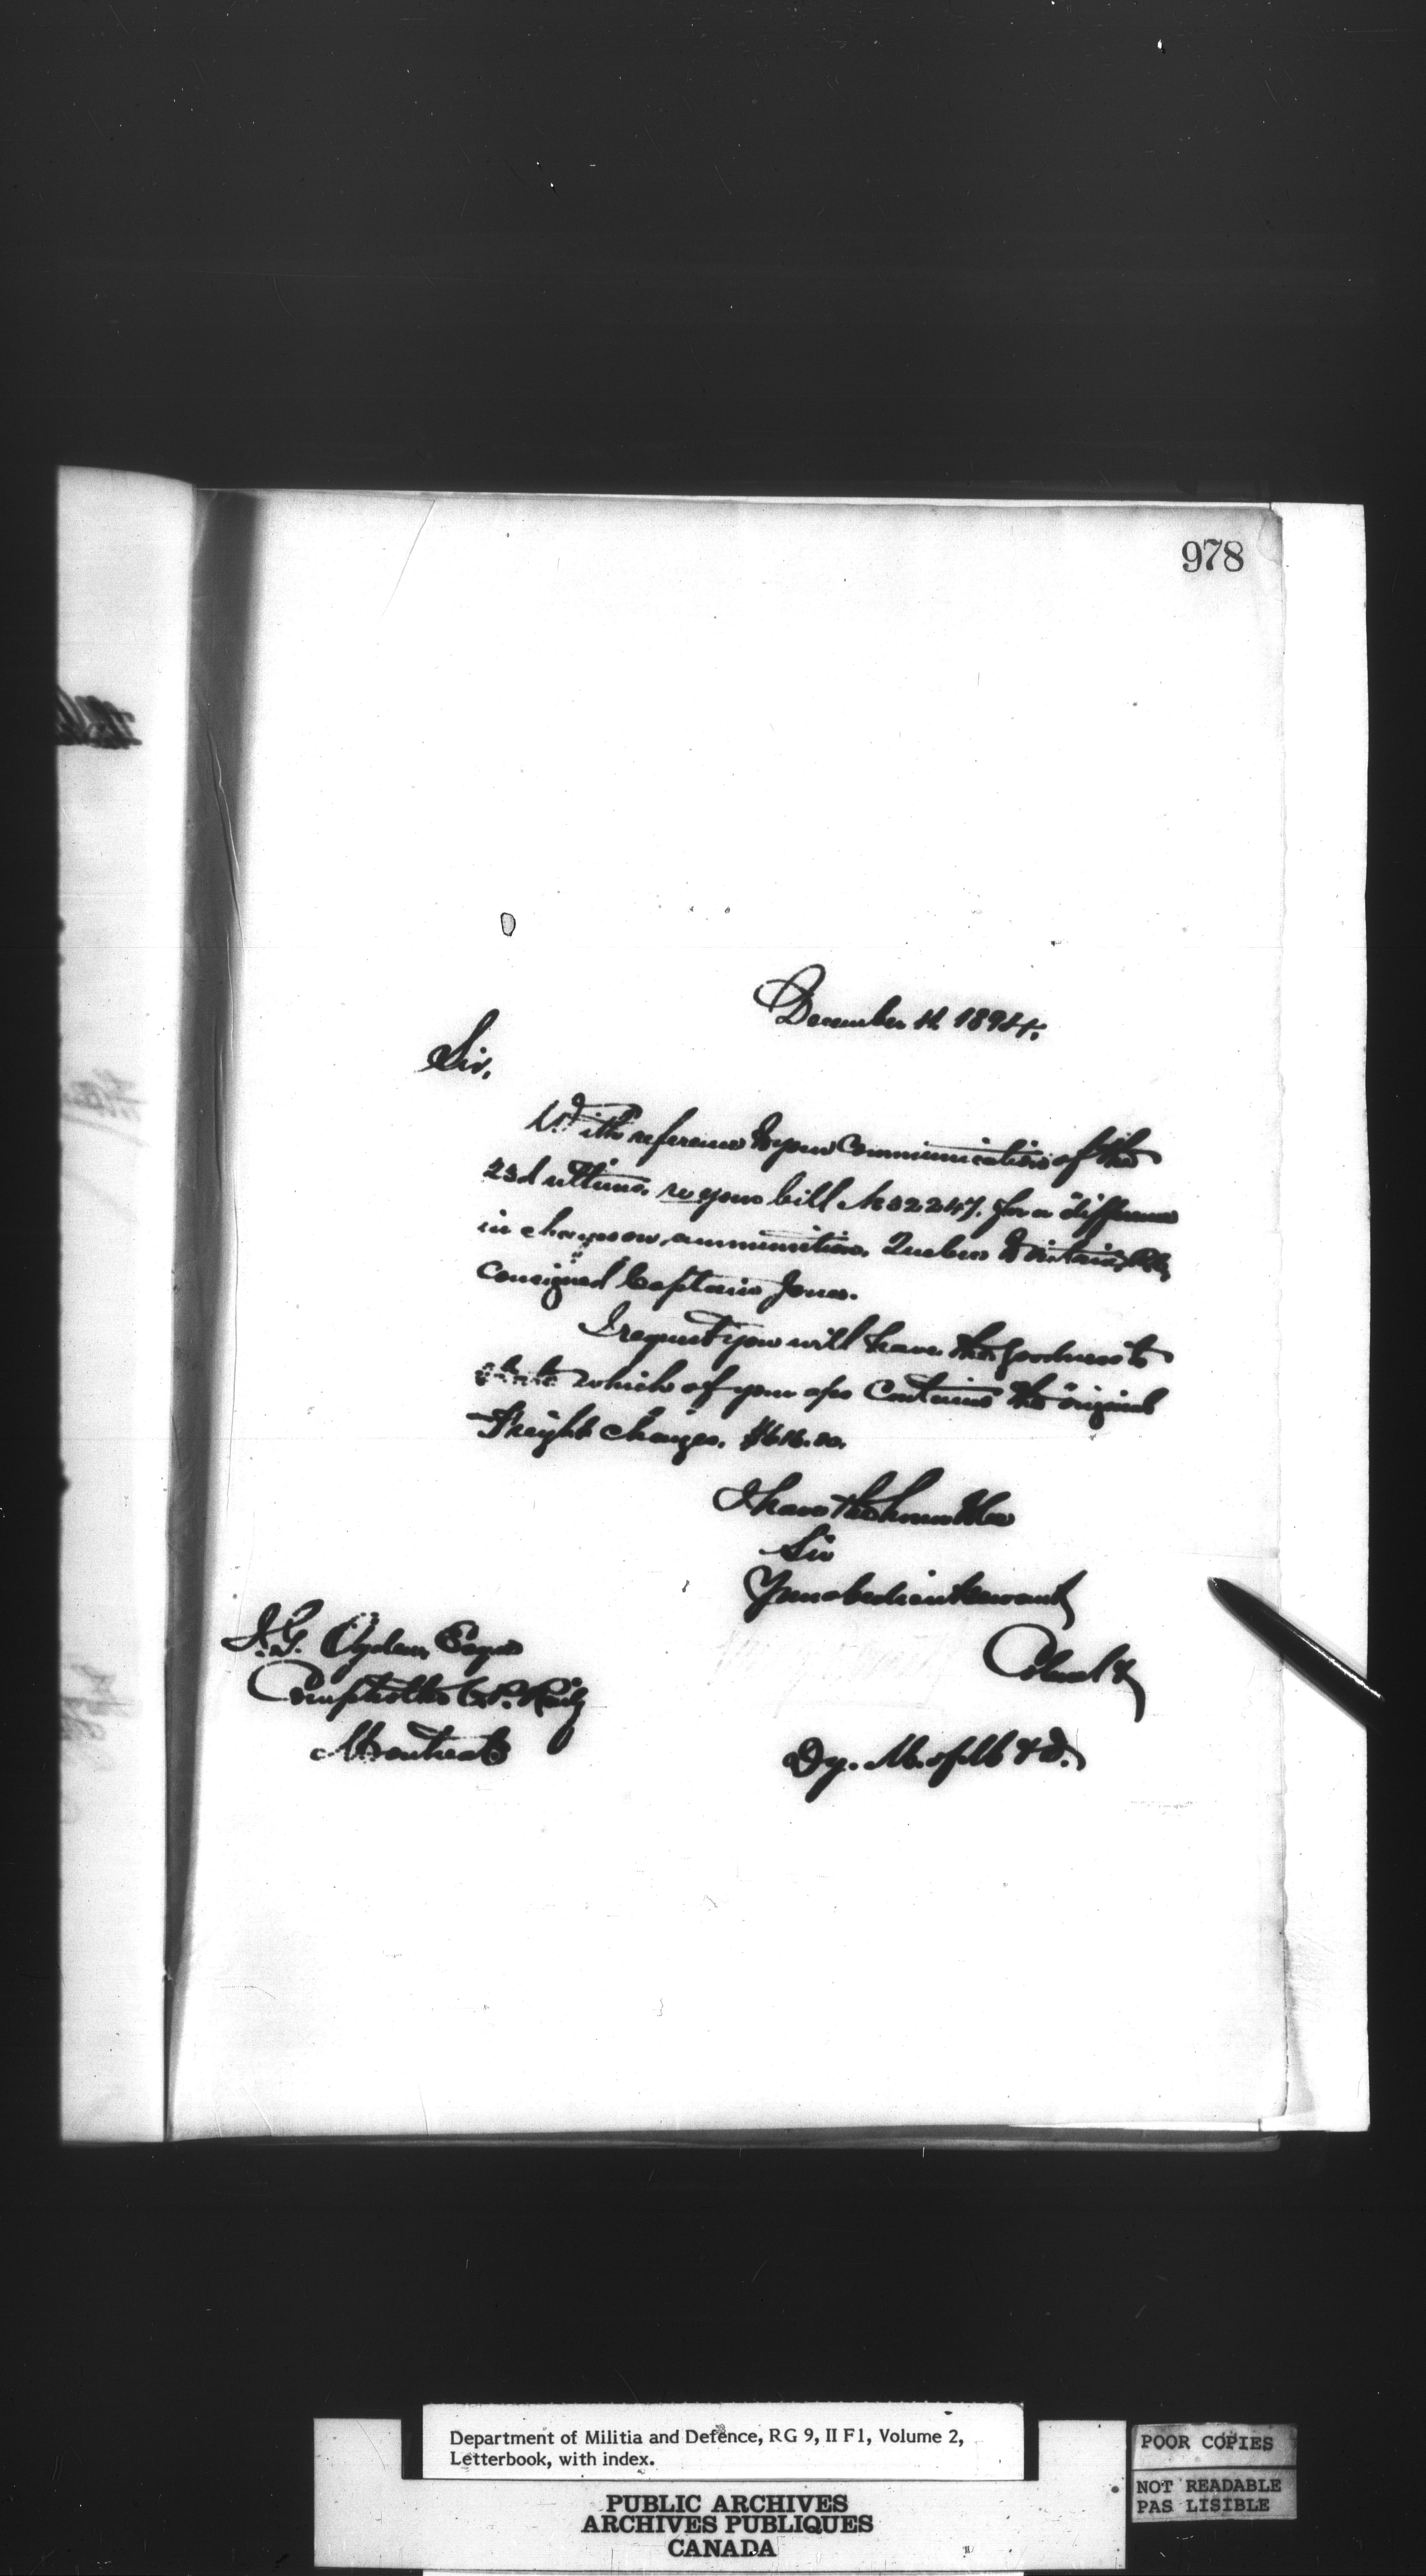 978
December 11 1894.
Sir,
With reference to your communication of the
23d ultimo, re your bill No 2247. for a difference
in charges on ammunition, Quebec to Victoria, B.C.,
consigned Captain Jones.
I request you will have the goodness to
state which of your a/cs contains the original
Freight charges. $616.00.
I have the honour to be
Sir
Your obedient servant
Colonel
Dy. M. of M & D.
I. G. Ogden, Esqre
Comptroller C. P. Raily
Montreal
Department of Militia and Defence, RG 9, II F1, Volume 2,
Letterbook, with index.
PUBLIC ARCHIVES
ARCHIVES PUBLIQUES
CANADA
POOR COPIES
NOT READABLE
PAS LISIBLE